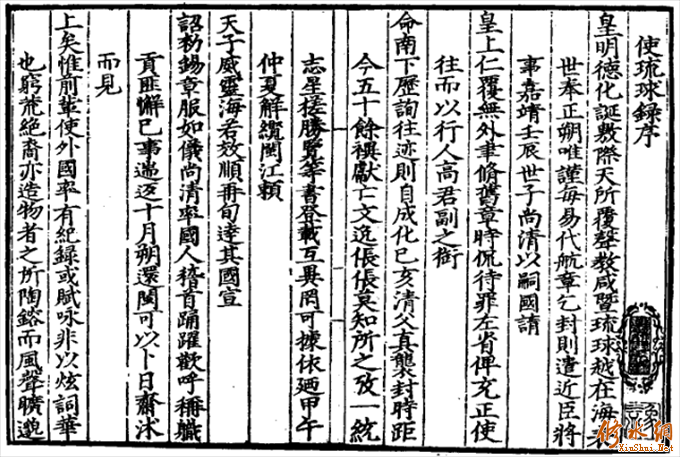 使琉球録序
皇明德化誕敷際天所覆聲教咸暨琉球越在海表
世奉正朔唯謹每易代航章乞封則遣近臣將
事嘉靖壬辰世子尚清以嗣國請
皇上仁覆無外聿脩舊章時侃待罪左省俾充正使
往而以行人高君副之銜
命南下歷詢往迹則自成化己亥清父真襲封時距
今五十餘禩獻亡文逸倀倀莫知所之攷一統
志星槎勝覽等書登載互異罔可據依廼甲午
仲夏解纜閩江賴
天子威靈海若效順再旬逹其國宣
詔勑錫章服如儀尚清率國人稽首踊躍歡呼稱軄
貢匪懈已事遄返十月朔還閩可以卜日齋沐
而見
上矣惟前輩使外國率有紀録或賦咏非以炫詞華
也窮荒絕裔亦造物者之所陶鎔而風聲曠邈
修水網
XiuShui.Net